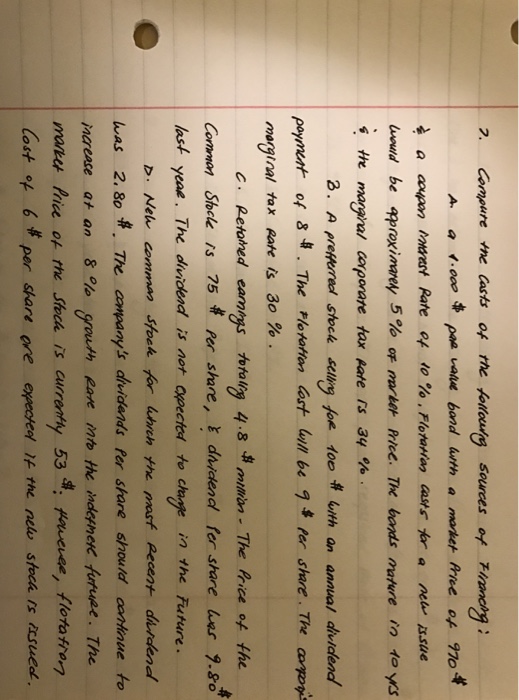 7. Compute the costs of the following sources of Financing:
A. a 1.000 $ par value bond with a market Price of 970 $
& a coupon interest Rate of 10 %. Flotation costs for a new issue
would be approximately 5% of market Price. The bonds mature in 10 yrs
& the marginal corporate tax Rate is 34 %.
B. A preferred stock selling for 100 $ with an annual dividend
payment of 8 $. The Flotation Cost will be 9 $ per share. The company's
marginal tax Rate is 30 %.
C. Retained earnings totaling 4.8 $ million - The Price of the
Common Stock is 75 $ per share, & dividend Per share was 9.80 $
last year. The dividend is not expected to change in the Future.
D. New common stock for which the most Recent dividend
was 2.80 $. The company's dividends Per share should continue to
increase at an 8 % growth Rate into the indefinite future. The
market Price of the stock is currently 53 $; However, flotation
Cost of 6 $ per share are expected if the new stock is issued.